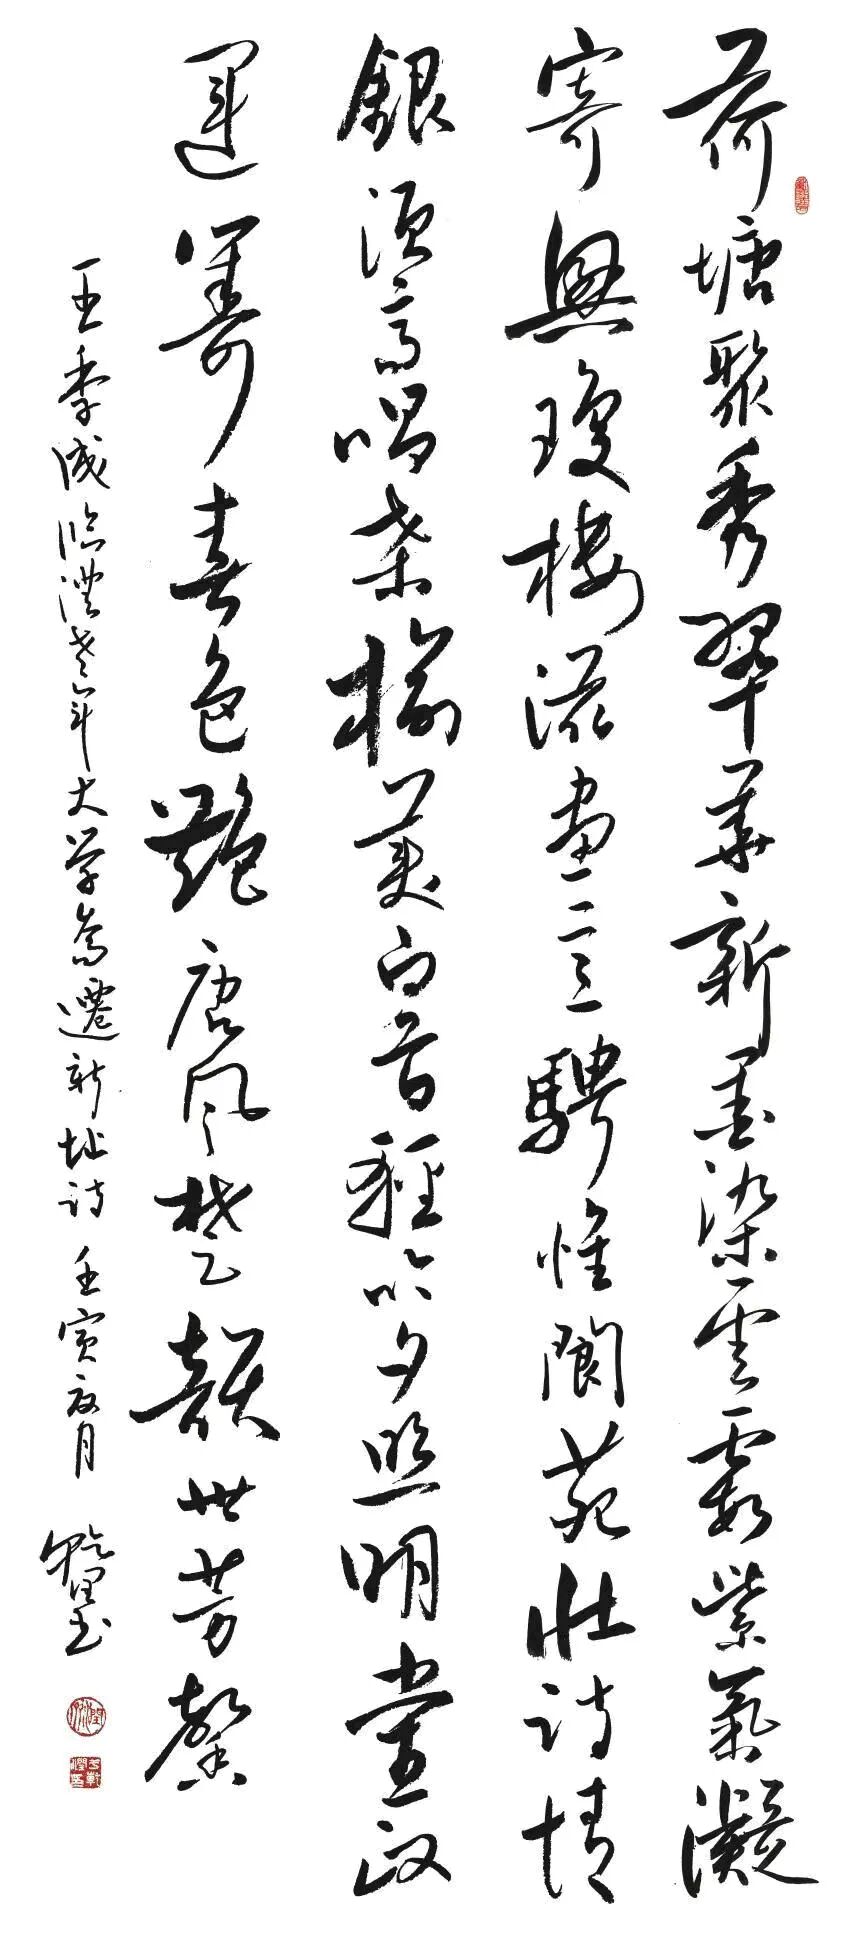 荷塘聚秀翠華新墨染雲霞紫氣凝
寄興瓊樓滋畫意騁懷閬苑壯詩情
銀須高唱桑榆美白首輕吟夕照明黨政
運籌春色艷唐風楚韻世芳馨
王季成臨澧老年大学喬遷新址詩 壬寅夏月